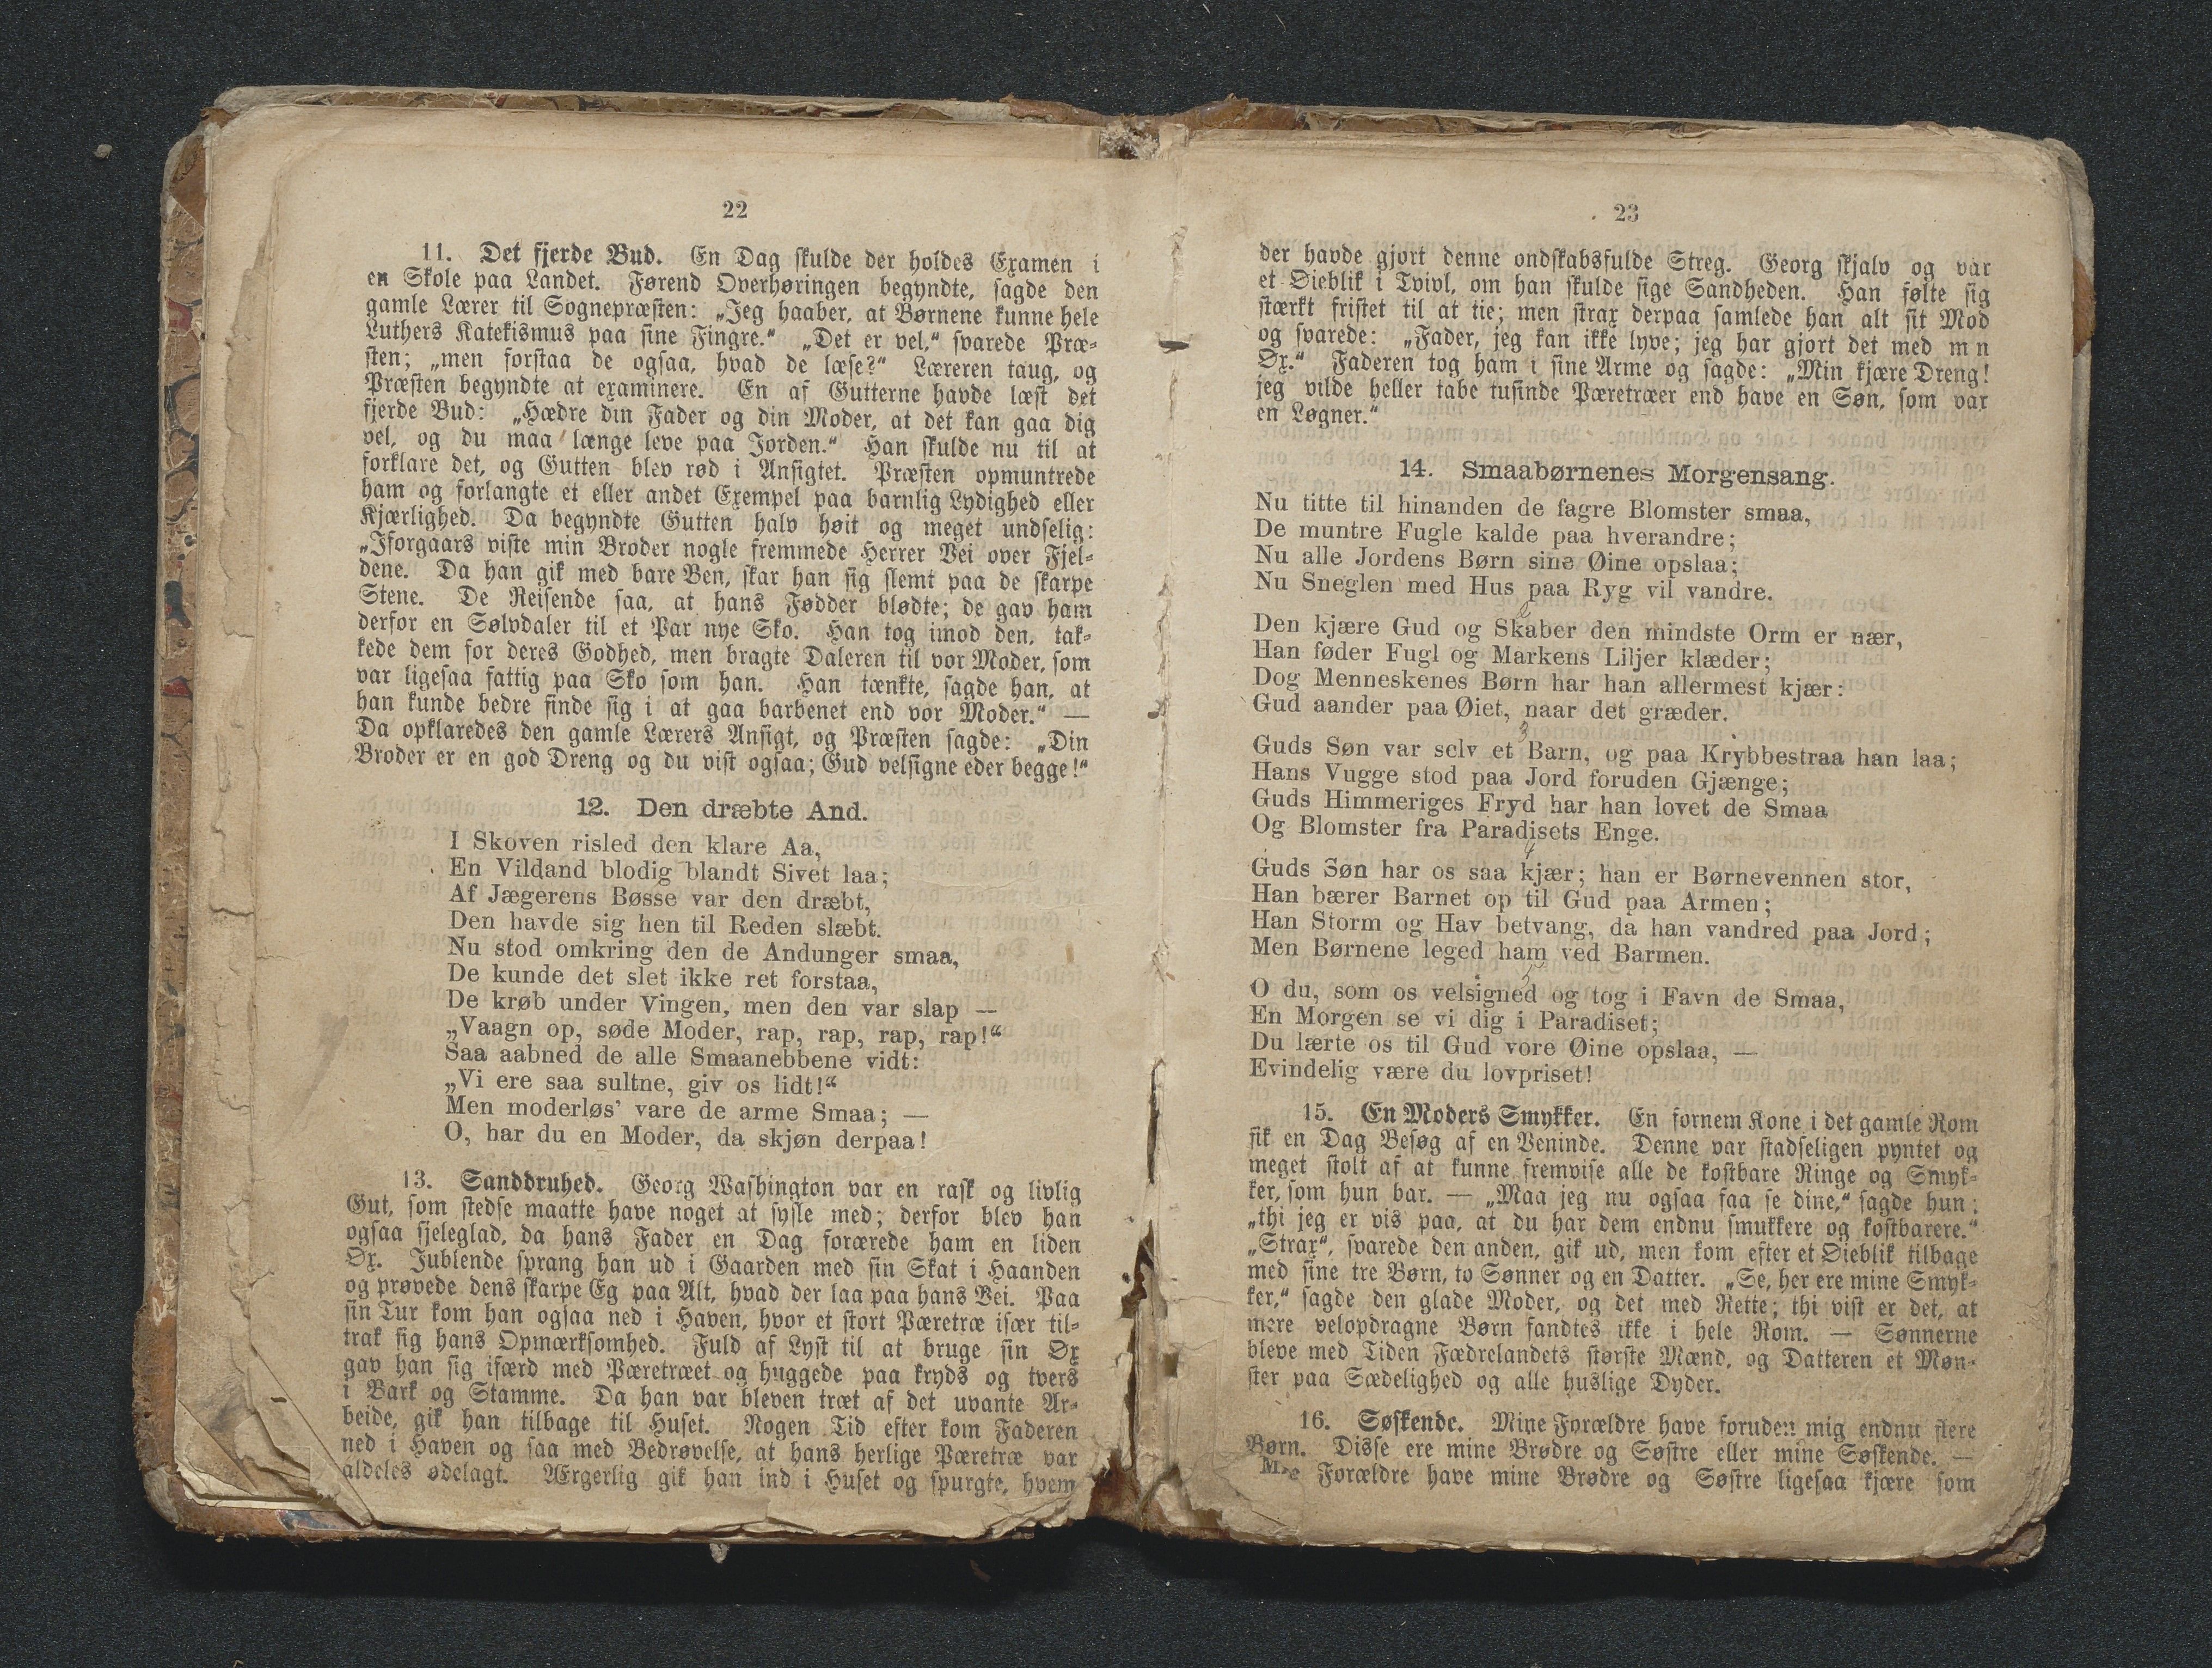 22
11. Det fjerde Bud. En Dag skulde der holdes Examen i
en Skole paa Landet. Førend Overhøringen begyndte, sagde den
gamle Lærer til Sognepræsten: „Jeg haaber, at Børnene kunne hele
Luthers Katekismus paa sine Fingre.“ „Det er vel,“ svarede Præ-
sten; „men forstaa de ogsaa, hvad de læse?“ Læreren taug, og
Præsten begyndte at examinere. En af Gutterne havde læst det
fjerde Bud: „Hædre din Fader og din Moder, at det kan gaa dig
vel, og du maa længe leve paa Jorden.“ Han skulde nu til at
forklare det, og Gutten blev rød i Ansigtet. Præsten opmuntrede
ham og forlangte et eller andet Exempel paa barnlig Lydighed eller
Kjærlighed. Da begyndte Gutten halv høit og meget undselig:
„Iforgaars viste min Broder nogle fremmede Herrer Vei over Fjel-
dene. Da han gik med bare Ben, skar han sig slemt paa de skarpe
Stene. De Reisende saa, at hans Fødder blødte; de gav ham
derfor en Sølvdaler til et Par nye Sko. Han tog imod den, tak-
kede dem for deres Godhed, men bragte Daleren til vor Moder, som
var ligesaa fattig paa Sko som han. Han tænkte, sagde han, at
han kunde bedre finde sig i at gaa barbenet end vor Moder.“ —
Da opklaredes den gamle Lærers Ansigt, og Præsten sagde: „Din
Broder er en god Dreng og du vist ogsaa; Gud velsigne eder begge!“
12. Den dræbte And.
I Skoven risled den klare Aa,
En Vildand blodig blandt Sivet laa;
Af Jægerens Bøsse var den dræbt,
Den havde sig hen til Reden slæbt.
Nu stod omkring den de Andunger smaa,
De kunde det slet ikke ret forstaa,
De krøb under Vingen, men den var slap —
„Vaagn op, søde Moder, rap, rap, rap, rap!“
Saa aabned de alle Smaanebbene vidt:
„Vi ere saa sultne, giv os lidt!“
Men moderløs’ vare de arme Smaa; —
O, har du en Moder, da skjøn derpaa!
13. Sanddruhed. Georg Washington var en rask og livlig
Gut, som stedse maatte have noget at sysle med; derfor blev han
ogsaa sjeleglad, da hans Fader en Dag forærede ham en liden
Øx. Jublende sprang han ud i Gaarden med sin Skat i Haanden
og prøvede dens skarpe Eg paa Alt, hvad der laa paa hans Vei. Paa
sin Tur kom han ogsaa ned i Haven, hvor et stort Pæretræ især til-
trak sig hans Opmærksomhed. Fuld af Lyst til at bruge sin Øx
gav han sig ifærd med Pæretræet og huggede paa kryds og tvers
i Bark og Stamme. Da han var bleven træt af det uvante Ar-
beide, gik han tilbage til Huset. Nogen Tid efter kom Faderen
ned i Haven og saa med Bedrøvelse, at hans herlige Pæretræ var
aldeles ødelagt. Ærgerlig gik han ind i Huset og spurgte, hvem
23
der havde gjort denne ondskabsfulde Streg. Georg skjalv og var
et Øieblik i Tvivl, om han skulde sige Sandheden. Han følte sig
stærkt fristet til at tie; men strax derpaa samlede han alt sit Mod
og svarede: „Fader, jeg kan ikke lyve; jeg har gjort det med m n
Øx.“ Faderen tog ham i sine Arme og sagde: „Min kjære Dreng!
jeg vilde heller tabe tusinde Pæretræer end have en Søn, som var
en Løgner.“
14. Smaabørnenes Morgensang.
Nu titte til hinanden de fagre Blomster smaa,
De muntre Fugle kalde paa hverandre;
Nu alle Jordens Børn sine Øine opslaa;
Nu Sneglen med Hus paa Ryg vil vandre.
Den kjære Gud og Skaber den mindste Orm er nær,
Han føder Fugl og Markens Liljer klæder;
Dog Menneskenes Børn har han allermest kjær:
Gud aander paa Øiet, naar det græder.
3
Guds Søn var selv et Barn, og paa Krybbestraa han laa;
Hans Vugge stod paa Jord foruden Gjænge;
Guds Himmeriges Fryd har han lovet de Smaa
Og Blomster fra Paradisets Enge.
4
Guds Søn har os saa kjær; han er Børnevennen stor,
Han bærer Barnet op til Gud paa Armen;
Han Storm og Hav betvang, da han vandred paa Jord;
Men Børnene leged ham ved Barmen.
O du, som os velsigned og tog i Favn de Smaa,
En Morgen se vi dig i Paradiset;
Du lærte os til Gud vore Øine opslaa, —
Evindelig være du lovpriset!
15. En Moders Smykker. En fornem Kone i det gamle Rom
fik en Dag Besøg af en Veninde. Denne var stadseligen pyntet og
meget stolt af at kunne fremvise alle de kostbare Ringe og Smyk-
ker, som hun bar. — „Maa jeg nu ogsaa faa se dine,“ sagde hun;
„thi jeg er vis paa, at du har dem endnu smukkere og kostbarere.“
„Strax“, svarede den anden, gik ud, men kom efter et Øieblik tilbage
med sine tre Børn, to Sønner og en Datter. „Se, her ere mine Smyk-
ker,“ sagde den glade Moder, og det med Rette; thi vist er det, at
mere velopdragne Børn fandtes ikke i hele Rom. — Sønnerne
bleve med Tiden Fædrelandets største Mænd, og Datteren et Møn-
ster paa Sædelighed og alle huslige Dyder.
16. Søskende. Mine Forældre have foruden mig endnu flere
Børn. Disse ere mine Brødre og Søstre eller mine Søskende. —
Forældre have mine Brødre og Søstre ligesaa kjære som